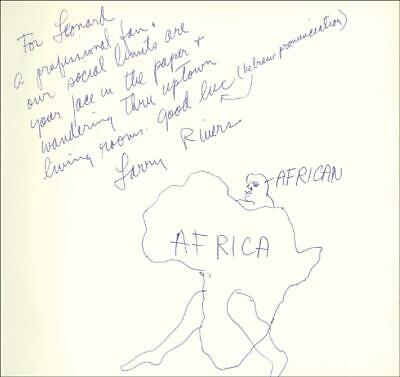 For Leonard
a professional fan.
our social limits are
your face in the paper +
wandering thru uptown
living rooms. Good luc (hebrew pronunciation)
Larry Rivers
AFRICAN
AFRICA